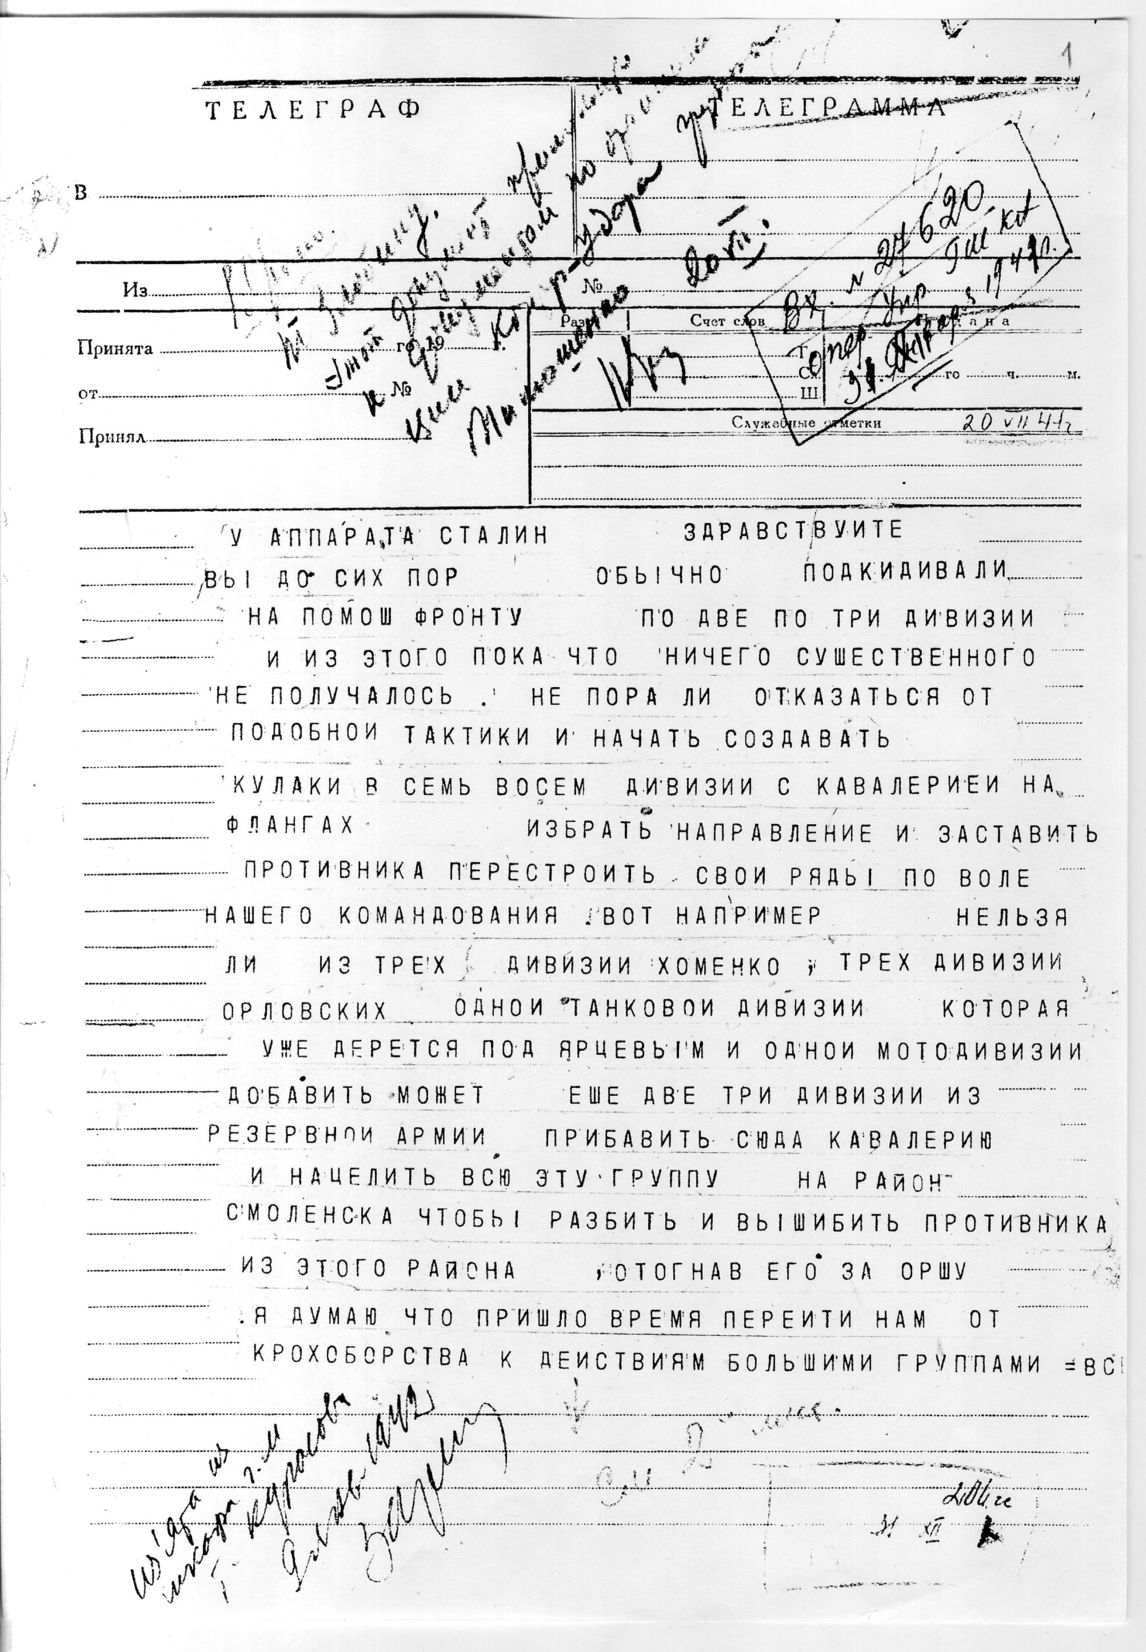 1
ТЕЛЕГРАФ
ТЕЛЕГРАММА
В
Из
№
Принята
го 19
Счет слов
от
№
Принял
Служебные отметки
20 VII 41 г
т Злобину.
Этот документ
к документам по организа
ции контр-удара
Тимошенко
20 VII.
Вх. № 27620
Опер. Упр
У АППАРАТА СТАЛИН ЗДРАВСТВУИТЕ
ВЫ ДО СИХ ПОР ОБЫЧНО ПОДКИДИВАЛИ
НА ПОМОШ ФРОНТУ ПО ДВЕ ПО ТРИ ДИВИЗИИ
И ИЗ ЭТОГО ПОКА ЧТО НИЧЕГО СУШЕСТВЕННОГО
НЕ ПОЛУЧАЛОСЬ . НЕ ПОРА ЛИ ОТКАЗАТЬСЯ ОТ
ПОДОБНОИ ТАКТИКИ И НАЧАТЬ СОЗДАВАТЬ
КУЛАКИ В СЕМЬ ВОСЕМ ДИВИЗИИ С КАВАЛЕРИЕИ НА
ФЛАНГАХ ИЗБРАТЬ НАПРАВЛЕНИЕ И ЗАСТАВИТЬ
ПРОТИВНИКА ПЕРЕСТРОИТЬ СВОИ РЯДЫ ПО ВОЛЕ
НАШЕГО КОМАНДОВАНИЯ .ВОТ НАПРИМЕР НЕЛЬЗЯ
ЛИ ИЗ ТРЕХ ДИВИЗИИ ХОМЕНКО , ТРЕХ ДИВИЗИИ
ОРЛОВСКИХ ОДНОИ ТАНКОВОИ ДИВИЗИИ КОТОРАЯ
УЖЕ ДЕРЕТСЯ ПОД ЯРЦЕВЫМ И ОДНОИ МОТОДИВИЗИИ
ДОБАВИТЬ МОЖЕТ ЕШЕ ДВЕ ТРИ ДИВИЗИИ ИЗ
РЕЗЕРВНОИ АРМИИ ПРИБАВИТЬ СЮДА КАВАЛЕРИЮ
И НАЦЕЛИТЬ ВСЮ ЭТУ ГРУППУ НА РАЙОН
СМОЛЕНСКА ЧТОБЫ РАЗБИТЬ И ВЫШИБИТЬ ПРОТИВНИКА
ИЗ ЭТОГО РАЙОНА ,ОТОГНАВ ЕГО ЗА ОРШУ
.Я ДУМАЮ ЧТО ПРИШЛО ВРЕМЯ ПЕРЕИТИ НАМ ОТ
КРОХОБОРСТВА К ДЕИСТВИЯМ БОЛЬШИМИ ГРУППАМИ =ВС
из'ята из
шкафа г.м
т. Курасова
1942
31 XII